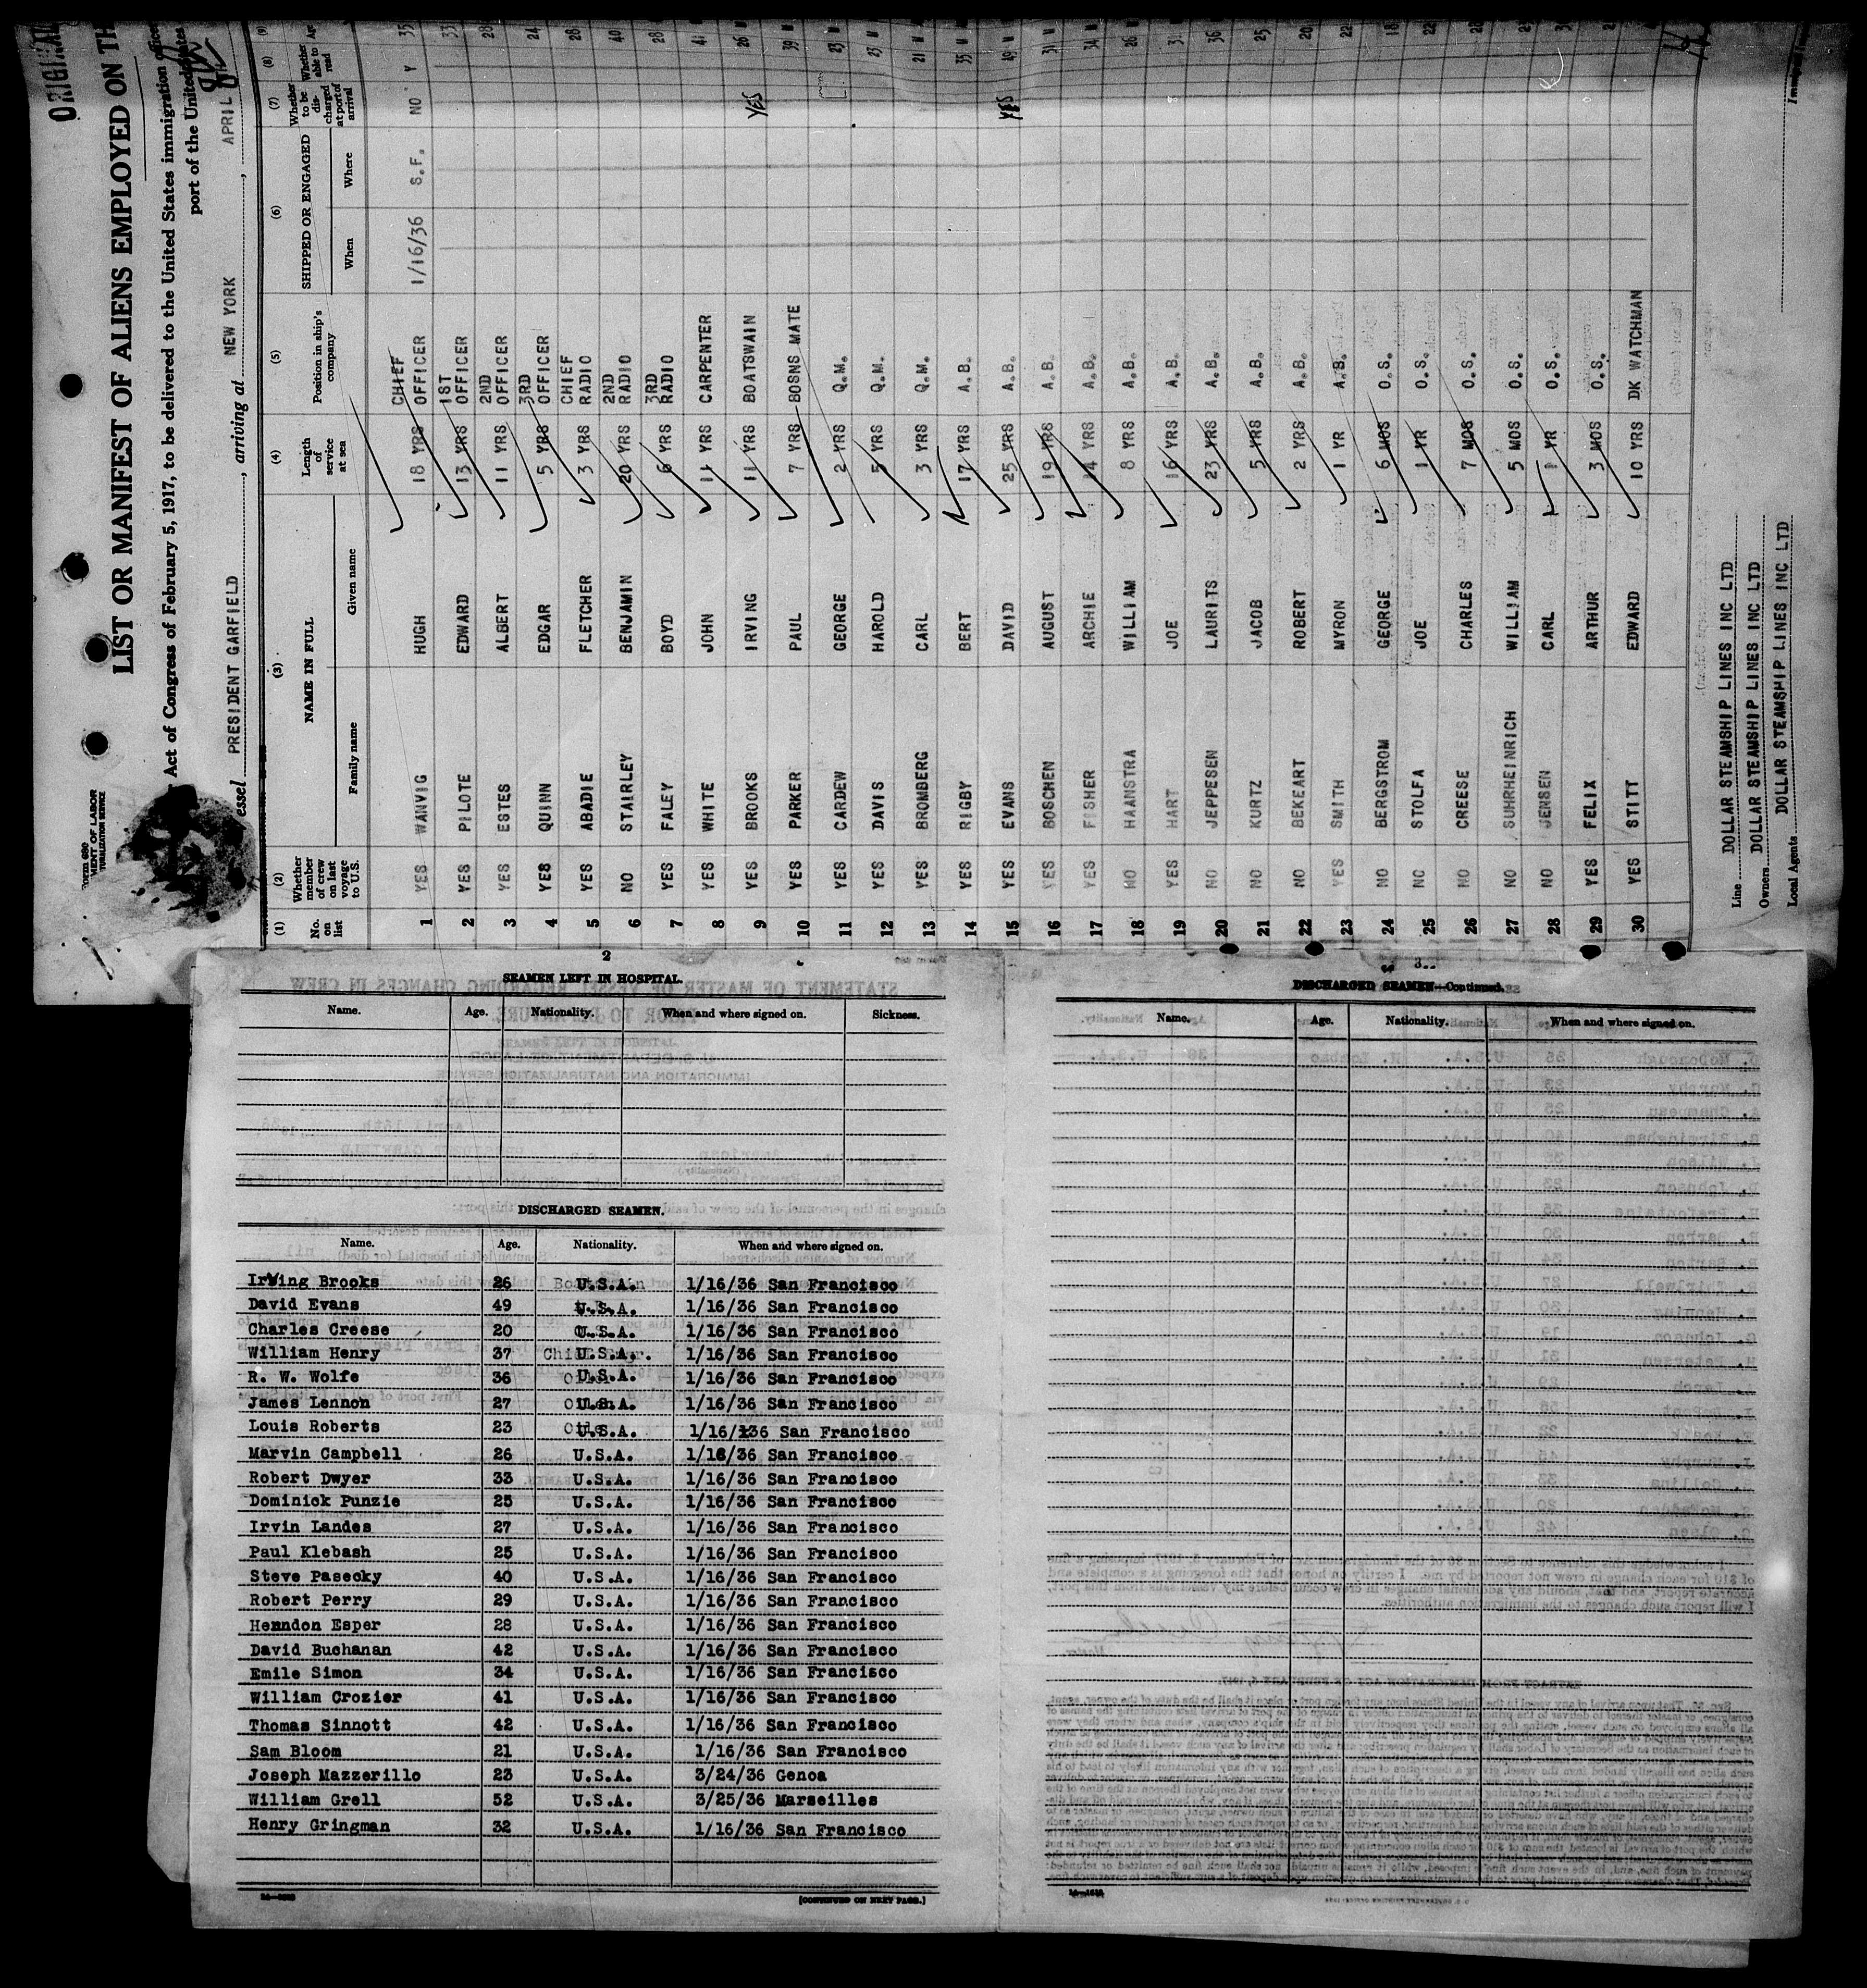 ORIGINAL
LIST OR MANIFEST OF ALIENS EMPLOYED ON
Act of Congress of February 5, 1917, to be delivered to the United States immigration
port of the United States
PRESIDENT GARFIELD, arriving at NEW YORK, APRIL
(1) (2) (3) (4) (5) (6) (7) (8) (9)
No. on list
Whether member of crew on last voyage to U.S.
NAME IN FULL
Family name Given name
Length of service at sea
Position in ship's company
SHIPPED OR ENGAGED
When Where
Whether to be discharged at port of arrival
Whether able to read
1 YES WANVIG HUGH 18 YRS CHIEF OFFICER 1/16/36 S.F. NO Y 35
2 YES PILOTE EDWARD 13 YRS 1ST OFFICER 33
3 YES ESTES ALBERT 11 YRS 2ND OFFICER 28
4 YES QUINN EDGAR 5 YRS 3RD OFFICER 24
5 YES ABADIE FLETCHER 3 YRS CHIEF RADIO 28
6 NO STAIRLEY BENJAMIN 20 YRS 2ND RADIO 40
7 YES FALEY BOYD 6 YRS 3RD RADIO 28
8 YES WHITE JOHN 11 YRS CARPENTER 41
9 YES BROOKS IRVING 11 YRS BOATSWAIN YES 26
10 YES PARKER PAUL 7 YRS BOSNS MATE 39
11 YES CARDEW GEORGE 2 YRS Q.M. 23
12 YES DAVIS HAROLD 5 YRS Q.M. 23
13 YES BROMBERG CARL 3 YRS Q.M. 21
14 YES RIGBY BERT 17 YRS A.B. 35
15 YES EVANS DAVID 25 YRS A.B. YES 49
16 YES BOSCHEN AUGUST 19 YRS A.B. 31
17 YES FISHER ARCHIE 14 YRS A.B. 34
18 NO HAANSTRA WILLIAM 8 YRS A.B. 26
19 YES HART JOE 16 YRS A.B.
20 NO JEPPESEN LAURITS 23 YRS A.B. 36
21 NO KURTZ JACOB 5 YRS A.B. 25
22 NO BEKEART ROBERT 2 YRS A.B. 20
23 YES SMITH MYRON 1 YR A.B. 22
24 NO BERGSTROM GEORGE 6 MOS O.S. 18
25 NO STOLFA JOE 1 YR O.S.
26 NO CREESE CHARLES 7 MOS O.S.
27 NO SUHRHEINRICH WILLIAM 5 MOS O.S.
28 NO JENSEN CARL 1 YR O.S.
29 YES FELIX ARTHUR 3 MOS O.S.
30 YES STITT EDWARD 10 YRS DK WATCHMAN
Line DOLLAR STEAMSHIP LINES INC LTD
Owners DOLLAR STEAMSHIP LINES INC LTD
Local Agents DOLLAR STEAMSHIP LINES INC LTD
2
SEAMEN LEFT IN HOSPITAL.
Name. Age. Nationality. When and where signed on. Sickness.
DISCHARGED SEAMEN.
Name. Age. Nationality. When and where signed on.
Irving Brooks 26 U.S.A. 1/16/36 San Francisco
David Evans 49 U.S.A. 1/16/36 San Francisco
Charles Creese 20 U.S.A. 1/16/36 San Francisco
William Henry 37 U.S.A. 1/16/36 San Francisco
R. W. Wolfe 36 U.S.A. 1/16/36 San Francisco
James Lennon 27 U.S.A. 1/16/36 San Francisco
Louis Roberts 23 U.S.A. 1/16/36 San Francisco
Marvin Campbell 26 U.S.A. 1/16/36 San Francisco
Robert Dwyer 33 U.S.A. 1/16/36 San Francisco
Dominick Punzie 25 U.S.A. 1/16/36 San Francisco
Irvin Landes 27 U.S.A. 1/16/36 San Francisco
Paul Klebash 25 U.S.A. 1/16/36 San Francisco
Steve Pasecky 40 U.S.A. 1/16/36 San Francisco
Robert Perry 29 U.S.A. 1/16/36 San Francisco
Herndon Esper 28 U.S.A. 1/16/36 San Francisco
David Buchanan 42 U.S.A. 1/16/36 San Francisco
Emile Simon 34 U.S.A. 1/16/36 San Francisco
William Crozier 41 U.S.A. 1/16/36 San Francisco
Thomas Sinnott 42 U.S.A. 1/16/36 San Francisco
Sam Bloom 21 U.S.A. 1/16/36 San Francisco
Joseph Mazzerillo 23 U.S.A. 3/24/36 Genoa
William Grell 52 U.S.A. 3/25/36 Marseilles
Henry Gringman 32 U.S.A. 1/16/36 San Francisco
[CONTINUED ON NEXT PAGE.]
3
DISCHARGED SEAMEN—Continued.
Name. Age. Nationality. When and where signed on.